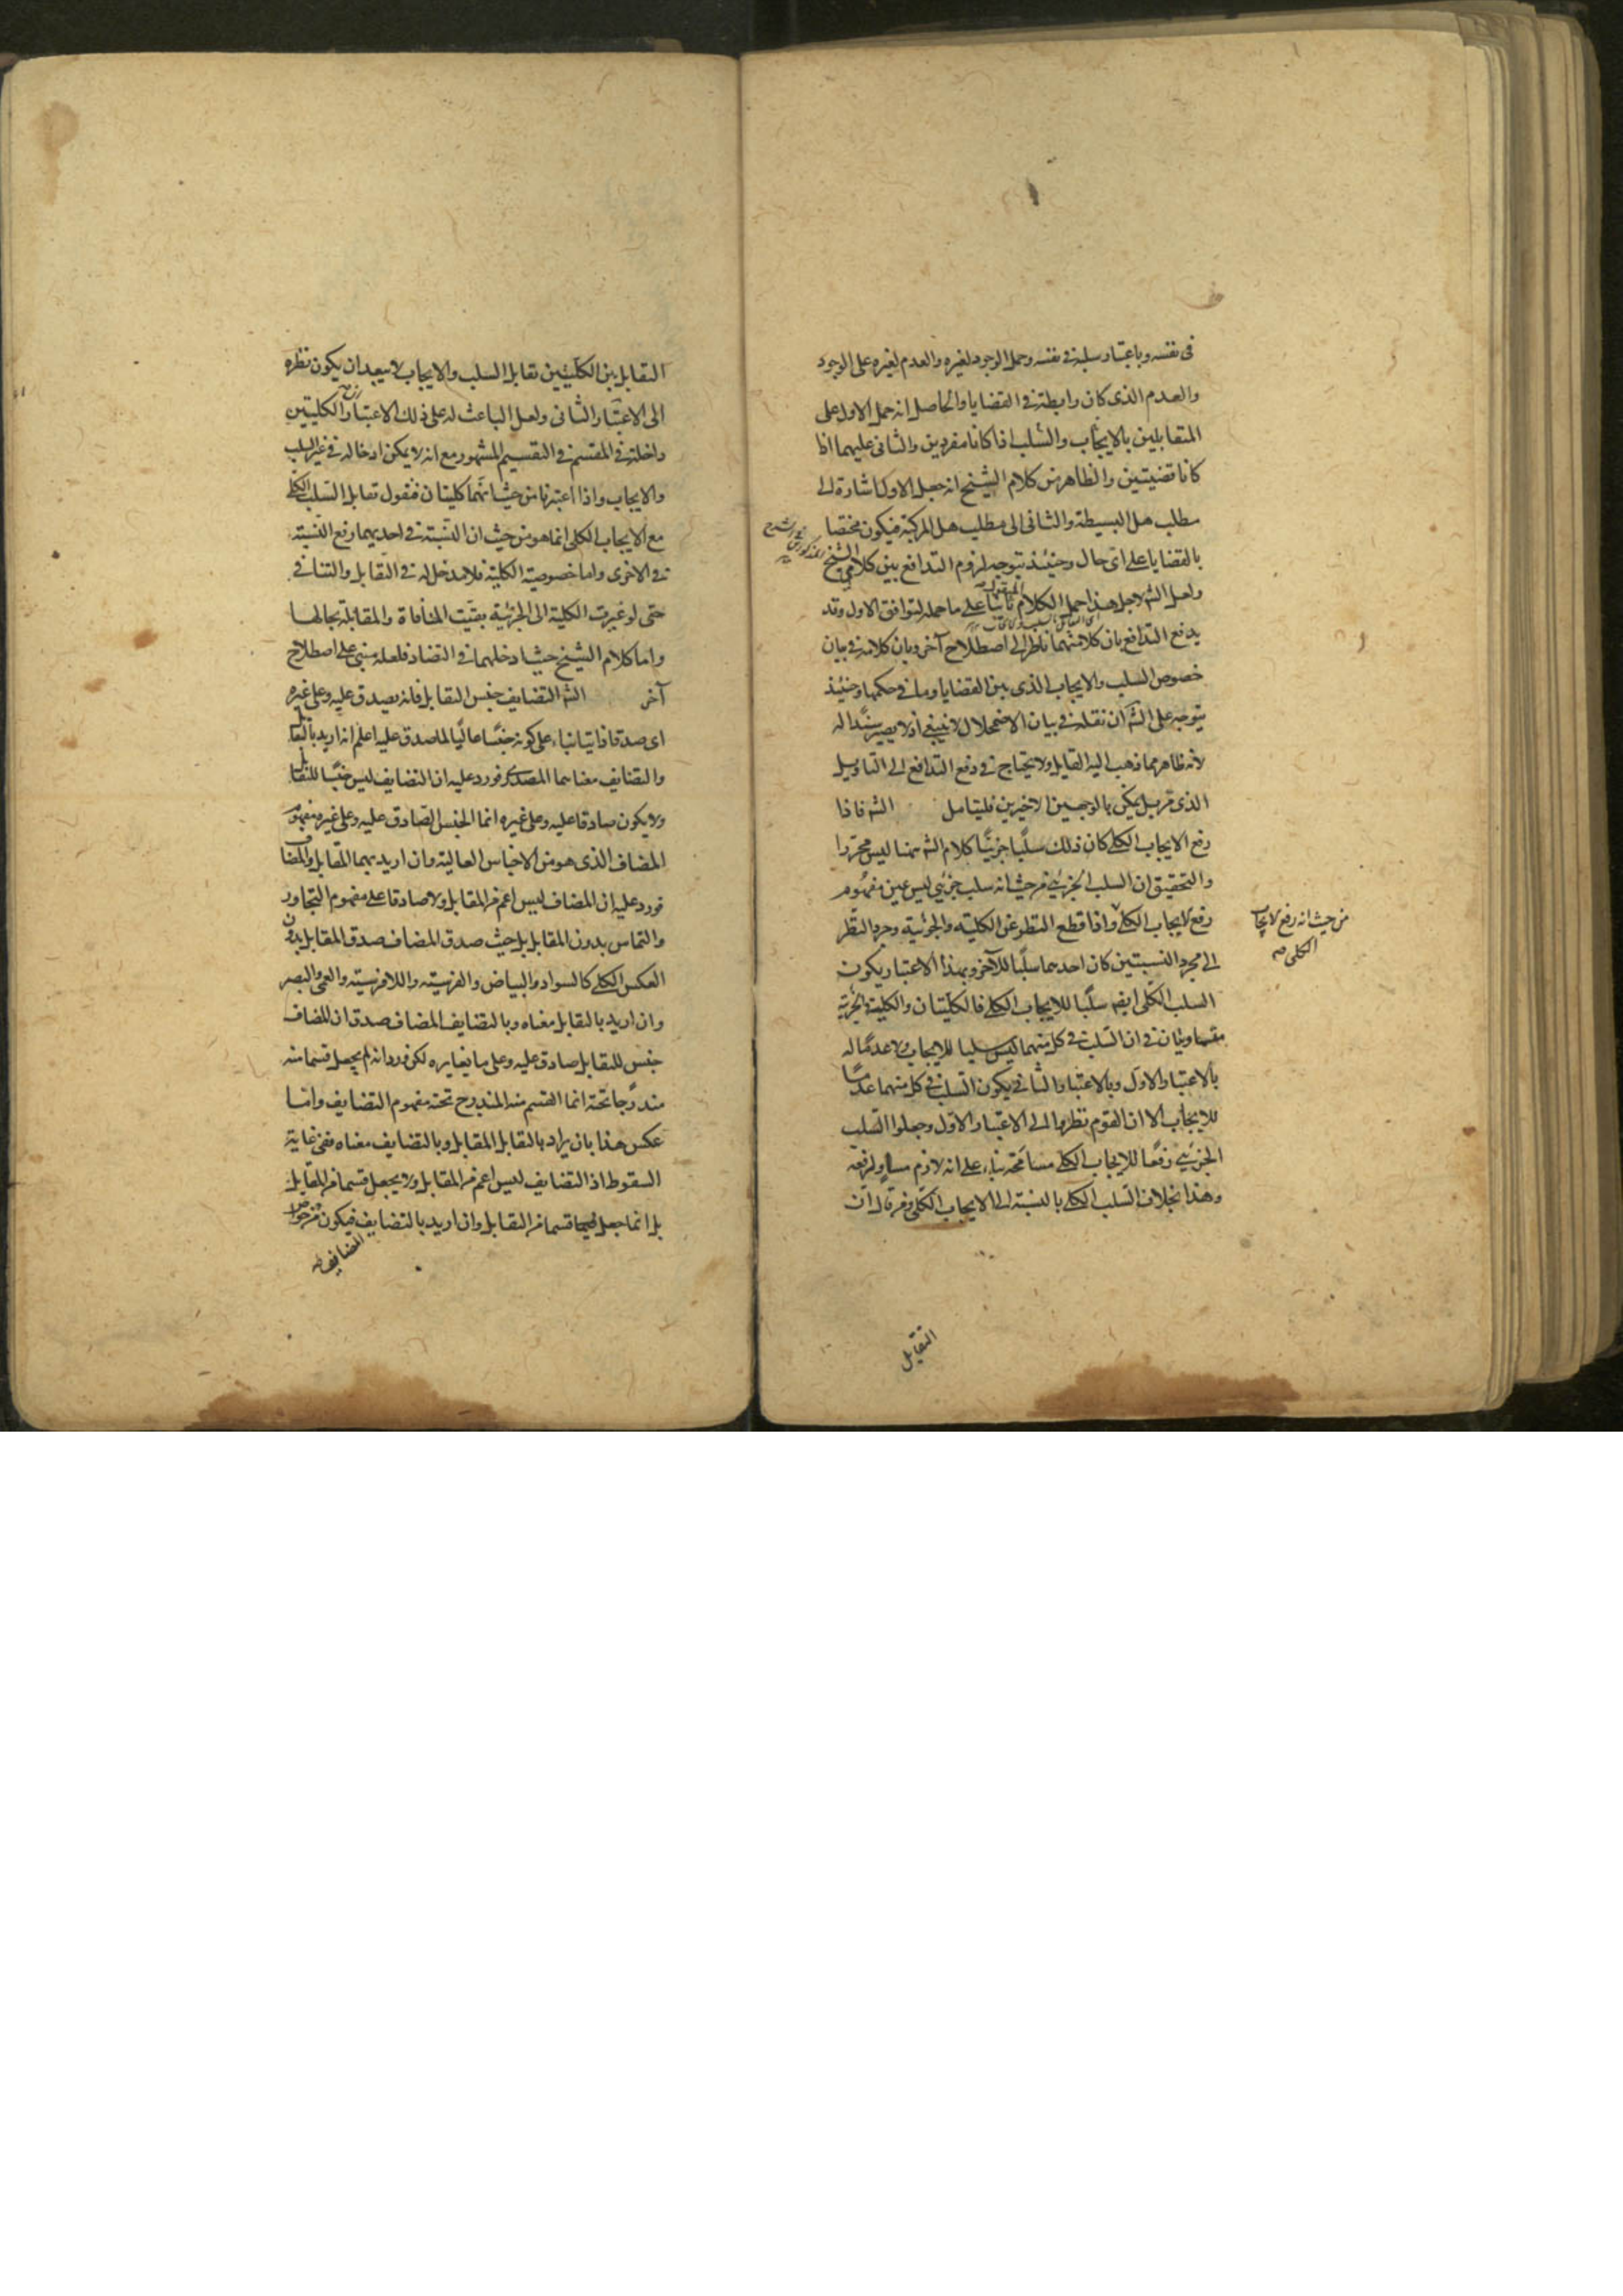 فى نفسه وباعتبار سلبه فى نفسه وحمل الوجود لغيره والعدم لغيره على الوجود
والعدم الذى كان رابطة فى القضايا والحاصل انه حمل الاول على
المتقابلين بالايجاب والسلب اذا كانا مفردين والثانى عليهما اذا
كانا قضيتين والظاهر من كلام الشيخ انه جعل الاول اشارة الى
مطلب هل البسيطة والثانى الى مطلب هل المركبة فيكون مختصا
بالقضايا على اى حال وحينئذ يتوجه لزوم التدافع بين كلامى الشيخ
ولعل الشه لاجل هذا حمل الكلام ثانيا على ما حمله ليتوافق الاول وقد
يدفع التدافع بان كلامهما ناظر الى اصطلاح آخر وبان كلامه فى بيان
خصوص السلب والايجاب الذى بين القضايا وما فى حكمها وحينئذ
يتوجه على الشه ان نقله فى بيان الاضمحلال لا ينبغى اذ لا يصير سندا له
لانه ظاهر مما ذهب اليه القايل ولا يحتاج فى دفع التدافع الى التاويل
الذى قر بل يمكن بالوجهين الاخيرين فليتامل الشه فاذا
رفع الايجاب الكلى كان ذلك سلبا جزئيا كلام الشه ههنا ليس محررا
والتحقيق ان السلب الجزئى من حيث انه سلب جزئى ليس عين مفهوم
رفع الايجاب الكلى واذا قطع النظر عن الكلية والجزئية وجرد النظر
من حيث انه رفع لايجاب
الكلى صه
الى مجرد النسبتين كان احدهما سلبا للآخر وبهذا الاعتبار يكون
السلب الكلى ايضه سلبا للايجاب الكلى فالكليتان والكلية والجزئية
متساويتان فى ان السلب فى كل منهما ليس سلبا للايجاب ولا عدما له
بالاعتبار الاول وبالاعتبار الثانى يكون السلب فى كل منهما عدما
للايجاب الا ان القوم نظروا الى الاعتبار الاول وجعلوا السلب
الجزئى رفعا للايجاب الكلى مسامحة بناء على انه لازم مساو لرفعه
وهذا بخلاف السلب الكلى بالنسبة الى الايجاب الكلى ومن قال ان
التقابل
التقابل بين الكليتين تقابل السلب والايجاب لا يبعد ان يكون نظره
الى الاعتبار الثانى ولعل الباعث له على ذلك الاعتبار والكليتين
داخلة فى المقسم فى التقسيم المشهور مع انه لا يمكن ادخاله فى غير السلب
والايجاب واذا اعتبرنا من حيث انهما كليتان فنقول تقابل السلب الكلى
مع الايجاب الكلى انما هو من حيث ان النسبة فى احديهما رفع النسبة
فى الاخرى واما خصوصية الكلية فلا مدخل له فى التقابل والتنافى
حتى لو غيرت الكلية الى الجزئية بقيت المنافاة والمقابلة بحالها
واما كلام الشيخ حيث ادخلهما فى التضاد فلعله مبنى على اصطلاح
آخر الشه التضايف جنس التقابل فانه يصدق عليه وعلى غيره
اى صدقا ذاتيا بناء على كونه جنسا عاليا لما صدق عليه اعلم انه اريد بالتقابل
والتضايف معناهما المصدرى فورد عليه ان التضايف ليس جنسا للتقابل
ولا يكون صادقا عليه وعلى غيره انما الجنس الصادق عليه وعلى غيره مفهوم
المضاف الذى هو من الاجناس العالية وان اريد بهما المتقابل والمضاف
فورد عليه ان المضاف ليس اعم من المقابل ولا صادقا على مفهوم التجاور
والتماس بدون المقابل بل حيث صدق المضاف صدق المقابل بدون
العكس الكلى كالسواد والبياض والفرسية واللافرسية والعمى والبصر
وان اريد بالتقابل معناه وبالتضايف المضاف صدق ان المضاف
جنس للتقابل صادق عليه وعلى ما يغايره لكن ورد انه لم يجعل قسما منه
مندرجا تحته انما القسم منه المندرج تحته مفهوم التضايف واما
عكس هذا بان يراد بالتقابل المقابل وبالتضايف معناه ففى غاية
السقوط اذ التضايف ليس اعم من المقابل ولا يجعل قسما من المقابل
بل انما جعل قسما من التقابل وان اريد بالتضايف فيكون
المضايف صه